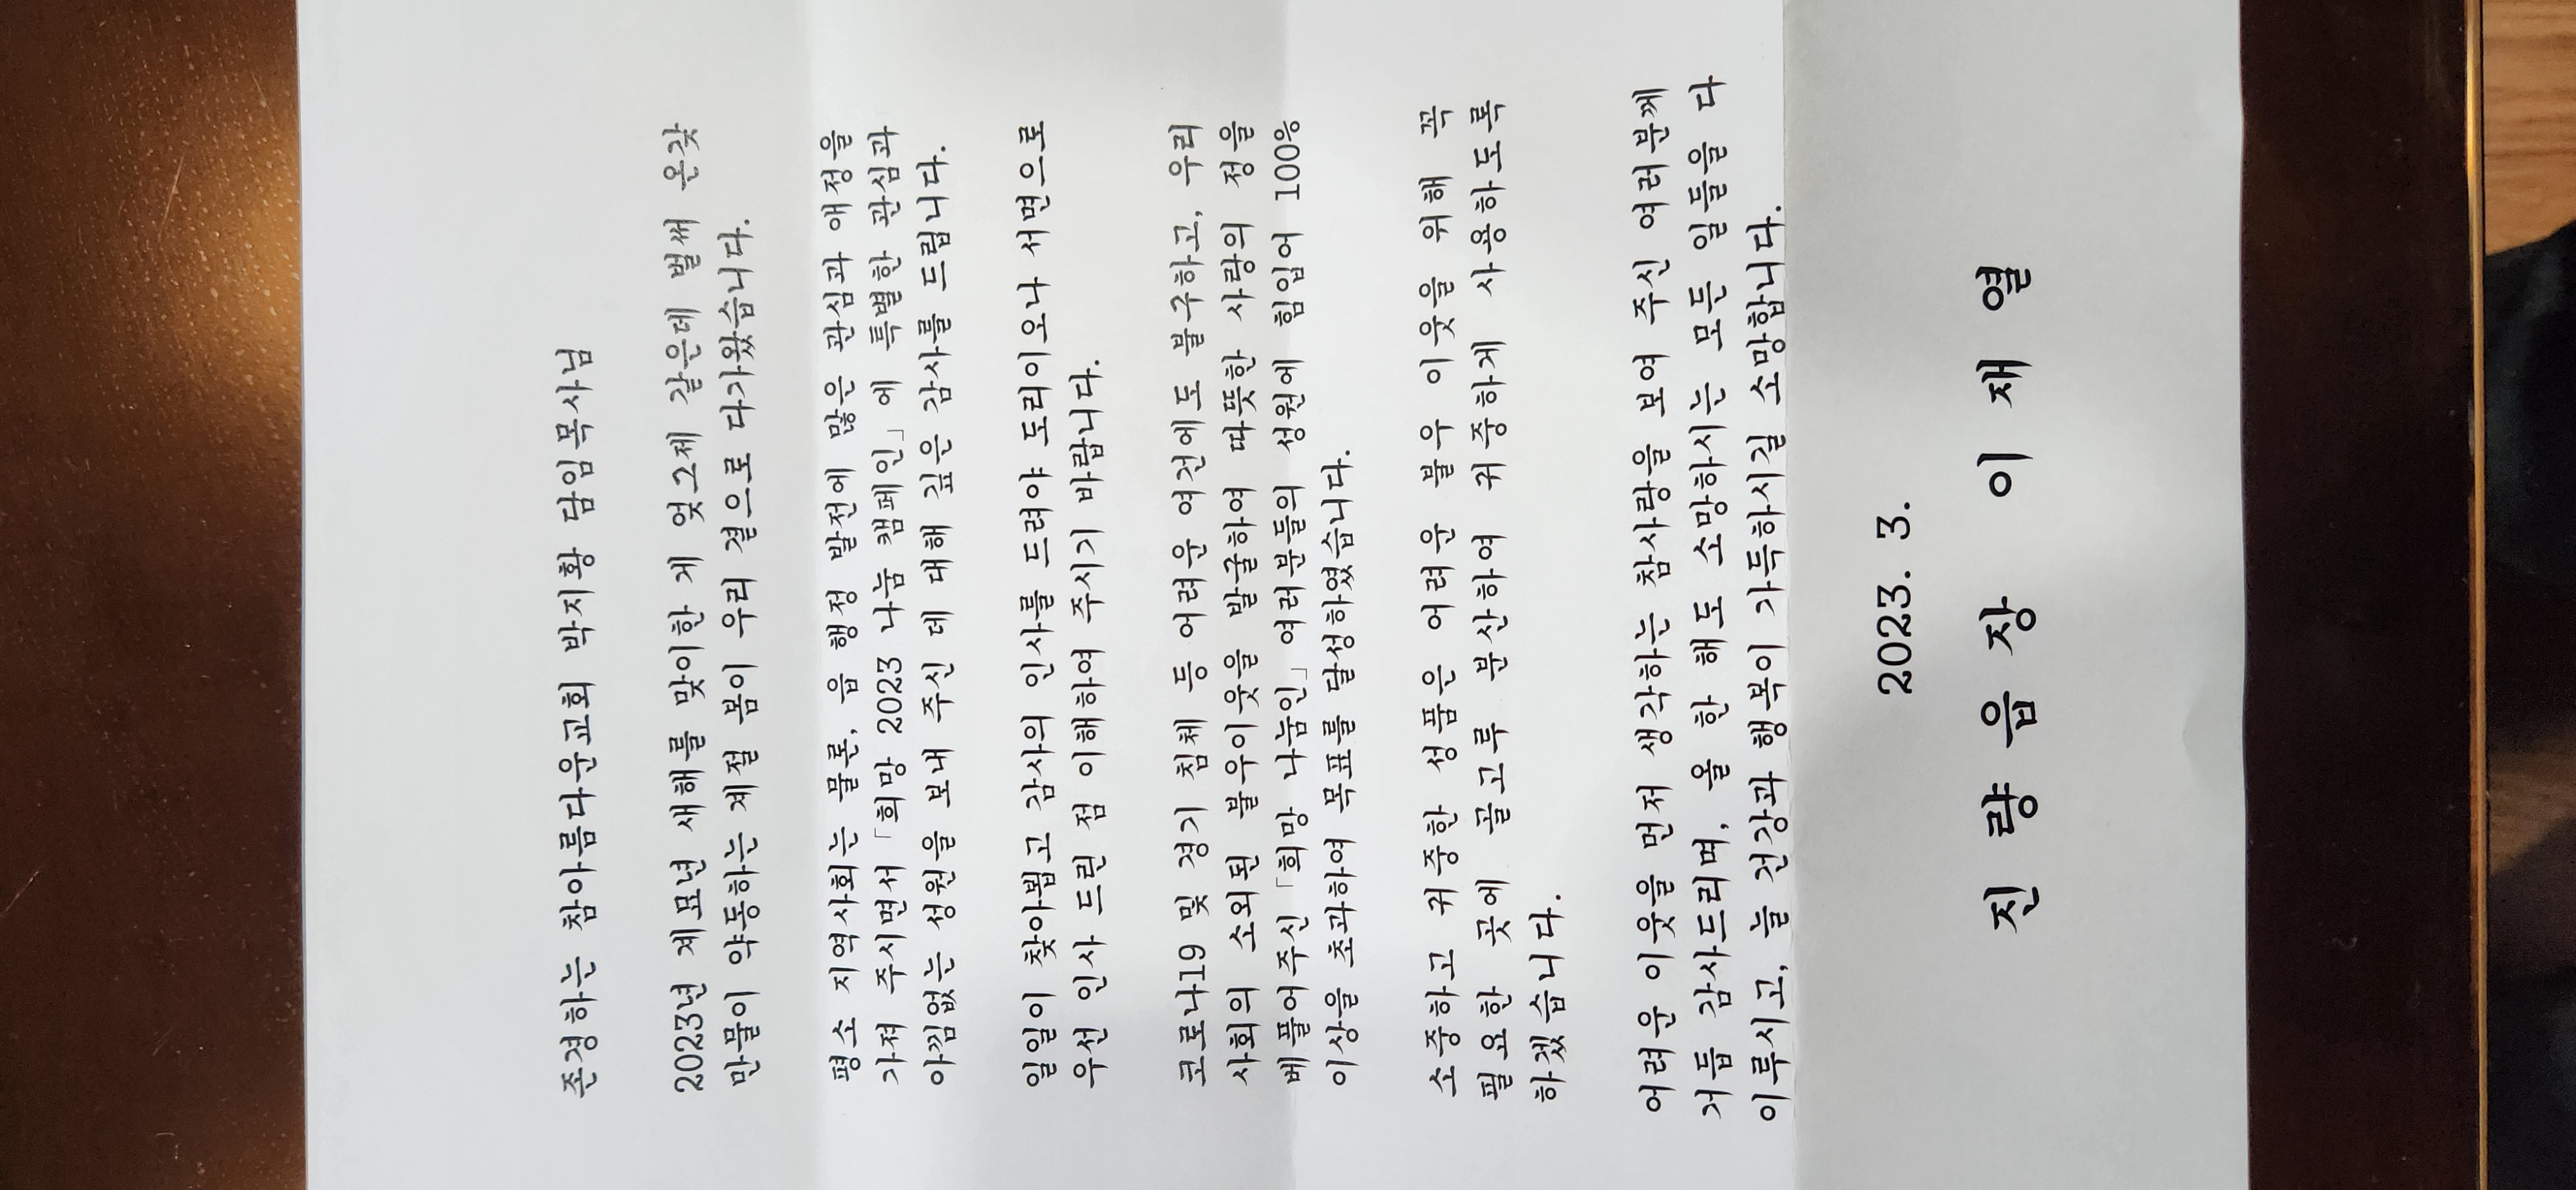 존경하는 참아름다운교회 박지황 담임목사님
2023년 계묘년 새해를 맞이한 게 엊그제 같은데 벌써 온갖
만물이 약동하는 계절 봄이 우리 곁으로 다가왔습니다.
평소 지역사회는 물론, 읍 행정 발전에 많은 관심과 애정을
가져 주시면서 「희망 2023 나눔 캠페인」에 특별한 관심과
아낌없는 성원을 보내 주신 데 대해 깊은 감사를 드립니다.
일일이 찾아뵙고 감사의 인사를 드려야 도리이오나 서면으로
우선 인사 드린 점 이해하여 주시기 바랍니다.
코로나19 및 경기 침체 등 어려운 여건에도 불구하고, 우리
사회의 소외된 불우이웃을 발굴하여 따뜻한 사랑의 정을
베풀어주신 「희망 나눔인」 여러분들의 성원에 힘입어 100%
이상을 초과하여 목표를 달성하였습니다.
소중하고 귀중한 성품은 어려운 불우 이웃을 위해 꼭
필요한 곳에 골고루 분산하여 귀중하게 사용하도록
하겠습니다.
어려운 이웃을 먼저 생각하는 참사랑을 보여 주신 여러분께
거듭 감사드리며, 올 한 해도 소망하시는 모든 일들을 다
이루시고, 늘 건강과 행복이 가득하시길 소망합니다.
2023. 3.
진 량 읍 장 이 재 열